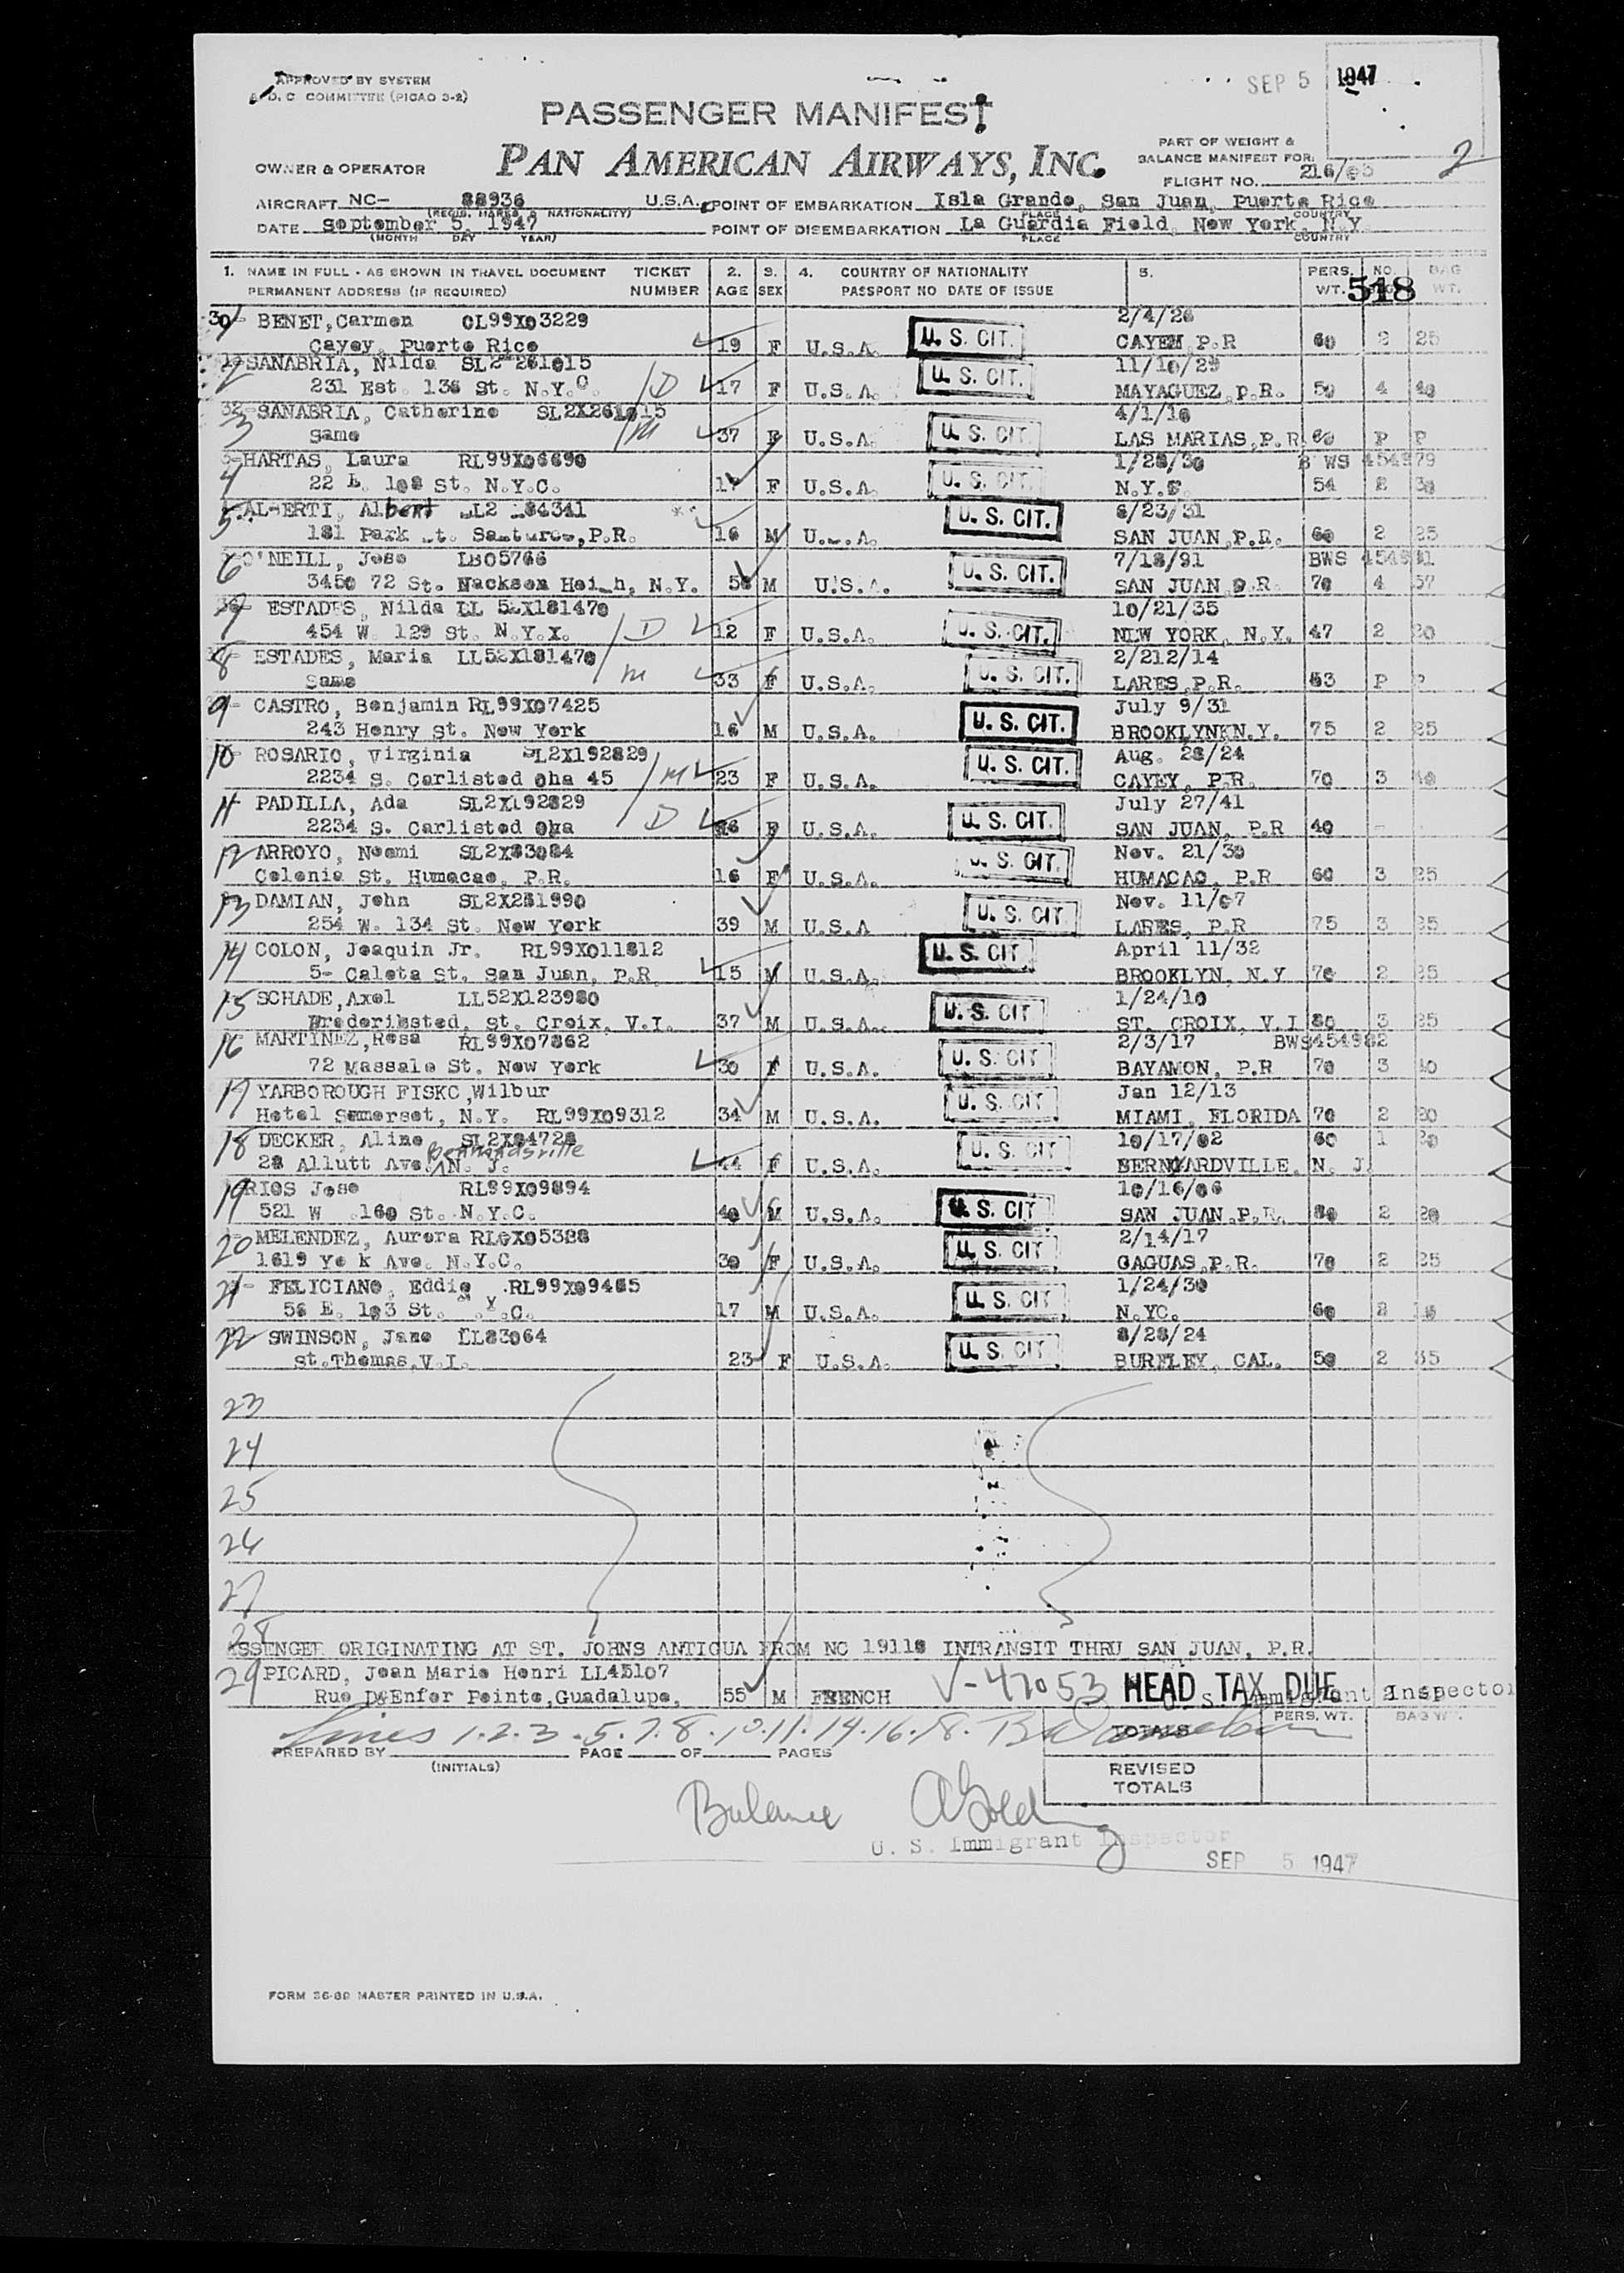 APPROVED BY SYSTEM
A. D. C COMMITTEE (PICAO 3-2)
SEP 5 1947
PASSENGER MANIFEST
OWNER & OPERATOR PAN AMERICAN AIRWAYS, INC.
PART OF WEIGHT &
BALANCE MANIFEST FOR:
FLIGHT NO. 216/
2
AIRCRAFT NC- 88936 U.S.A. POINT OF EMBARKATION Isla Grande, San Juan, Puerto Rico
(REGIS. MARKS & NATIONALITY) PLACE COUNTRY
DATE september 5, 1947 POINT OF DISEMBARKATION La Guardia Field, New York, N.Y.
(MONTH DAY YEAR) PLACE COUNTRY
1. NAME IN FULL - AS SHOWN IN TRAVEL DOCUMENT TICKET 2. 3. 4. COUNTRY OF NATIONALITY 5. PERS. NO. BAG
PERMANENT ADDRESS (IF REQUIRED) NUMBER AGE SEX PASSPORT NO DATE OF ISSUE WT. WT.
518
1 BENET, Carmen CL99X03229 U. S. CIT. 2/4/28
Cayey, Puerto Rico 19 F U.S.A. CAYEM P.R 60 2 25
2 SANABRIA, Nilda SL2 261015 U. S. CIT. 11/10/29
231 Est. 136 St. N.Y.C. D 17 F U.S.A. MAYAGUEZ, P.R. 50 4 40
3 SANABRIA, Catherine SL2X261015 4/1/10
Same M 37 F U.S.A. U. S. CIT. LAS MARIAS, P.R. 60 P P
4 HARTAS, Laura RL99X06690 1/28/30 BWS 454979
22 E. 108 St. N.Y.C. 17 F U.S.A. U. S. CIT. N.Y. 54 2 30
5 ALBERTI, Albert L2 84341 U. S. CIT. 8/23/31
181 Park St. Santurce, P.R. 16 M U.S.A. SAN JUAN, P.R. 60 2 25
6 O'NEILL, Jose LB05766 7/18/91 BWS 454981
3450 72 St. Nackson Heigh, N.Y. 56 M U.S.A. U. S. CIT. SAN JUAN P.R. 70 4 57
7 ESTADES, Nilda LL 52X181470 10/21/35
454 W. 129 St. N.Y.X. D 12 F U.S.A. U. S. CIT. NEW YORK, N.Y. 47 2 20
8 ESTADES, Maria LL52X181470 2/212/14
Same M 33 F U.S.A. U. S. CIT. LARES, P.R. 53 P P
9 CASTRO, Benjamin RL99X07425 July 9/31
243 Henry St. New York 16 M U.S.A. U. S. CIT. BROOKLYNKN.Y. 75 2 25
10 ROSARIO, Virginia SL2X192829 Aug. 28/24
2234 S. Carlisted Oha 45 M 23 F U.S.A. U. S. CIT. CAYEY, P.R. 70 3 40
11 PADILLA, Ada SL2X192829 July 27/41
2234 S. Carlisted Oha D 6 F U.S.A. U. S. CIT. SAN JUAN, P.R 40 -
12 ARROYO, Noemi SL2X83084 Nov. 21/30
Colonia St. Humacao, P.R. 16 F U.S.A. U. S. CIT. HUMACAO, P.R 60 3 25
13 DAMIAN, John SL2X251990 Nov. 11/07
254 W. 134 St. New York 39 M U.S.A U. S. CIT. LARES, P.R 75 3 25
14 COLON, Joaquin Jr. RL99X011812 U. S. CIT April 11/32
5- Caleta St. San Juan, P.R. 15 M U.S.A. BROOKLYN, N.Y 70 2 25
15 SCHADE, Axel LL52X123980 1/24/10
Frederiksted, St. Croix, V.I. 37 M U.S.A. U. S. CIT ST. CROIX, V.I 80 3 25
16 MARTINEZ, Rosa RL99X07862 2/3/17 BWS454982
72 Massale St. New York 30 F U.S.A. U. S. CIT BAYAMON, P.R 70 3 40
17 YARBOROUGH FISKC, Wilbur Jan 12/13
Hotel Somerset, N.Y. RL99X09312 34 M U.S.A. U. S. CIT MIAMI, FLORIDA 70 2 20
18 DECKER, Aline SL2X84728 10/17/02 60 1 20
28 Allutt Ave. Bernardsville N. J. 44 F U.S.A. U. S. CIT BERNARDVILLE, N. J.
19 RIOS Jose RL99X09894 10/16/06
521 W .160 St. N.Y.C. 40 M U.S.A. U. S. CIT SAN JUAN, P.R. 80 2 20
20 MELENDEZ, Aurora RLGX05388 2/14/17
1619 Yo k Ave. N.Y.C. 30 F U.S.A. U. S. CIT GAGUAS, P.R. 70 2 25
21 FELICIANO, Eddie RL99X09465 1/24/30
56 E. 103 St. N.Y.C. 17 M U.S.A. U. S. CIT N.YC. 60 2
22 SWINSON, Jane LL83064 8/28/24
St. Thomas, V.I. 23 F U.S.A. U. S. CIT BURELEY, CAL. 50 2 35
23
24
25
26
27
28
ASSENGER ORIGINATING AT ST. JOHNS ANTIGUA FROM NC 19118 INTRANSIT THRU SAN JUAN, P.R.
29 PICARD, Jean Marie Henri LL45107
Rue D&Enfer Pointe, Guadalupe, 55 M FRENCH V-47053 HEAD TAX DUE
U. S. Immigrant Inspector
Lines 1.2.3.5.7.8.10.11.14.16.18.
PREPARED BY PAGE OF PAGES
(INITIALS)
TOTALS PERS. WT. BAG WT.
REVISED
TOTALS
Balance AGold
U. S. Immigrant Inspector
SEP 5 1947
FORM 36-80 MASTER PRINTED IN U.S.A.